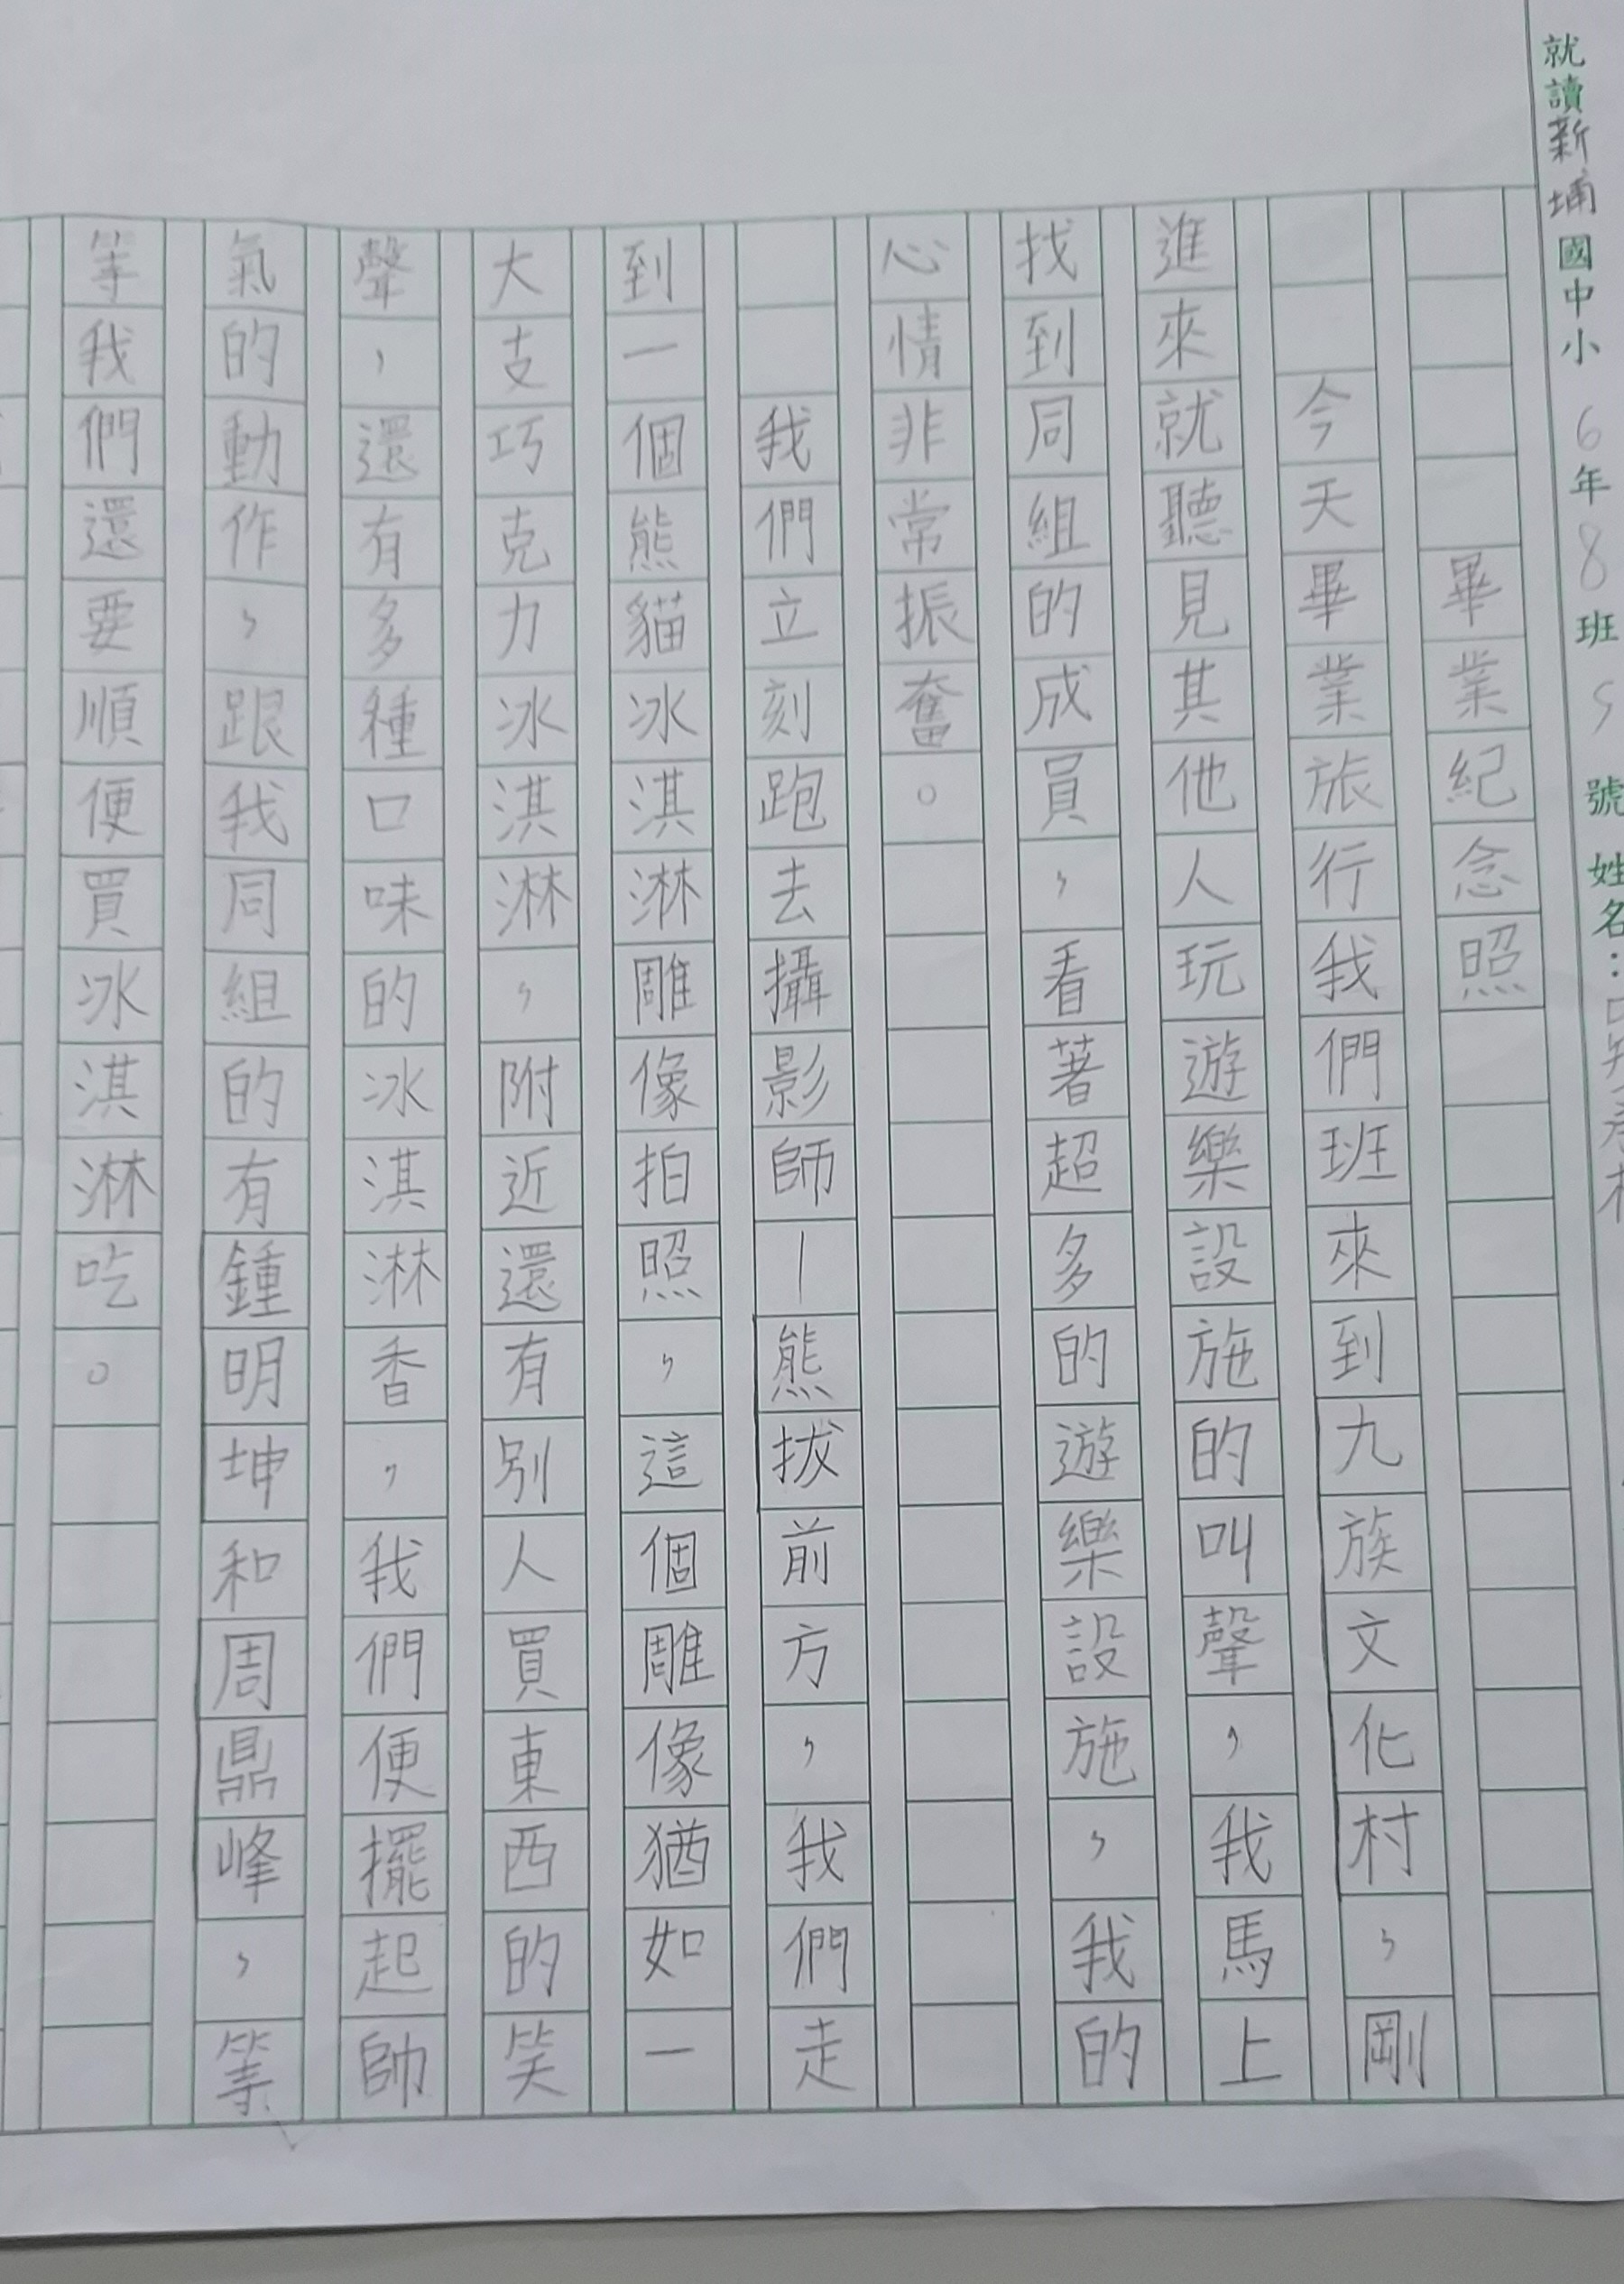 就讀新埔國中小 6年8班 5號 姓名：
畢業紀念照
今天畢業旅行我們班來到九族文化村，剛
進來就聽見其他人玩遊樂設施的叫聲，我馬上
找到同組的成員，看著超多的遊樂設施，我的
心情非常振奮。
我們立刻跑去攝影師—熊拔前方，我們走
到一個熊貓冰淇淋雕像拍照，這個雕像猶如一
大支巧克力冰淇淋，附近還有別人買東西的笑
聲，還有多種口味的冰淇淋香，我們便擺起帥
氣的動作，跟我同組的有鍾明坤和周鼎峰，等
等我們還要順便買冰淇淋吃。